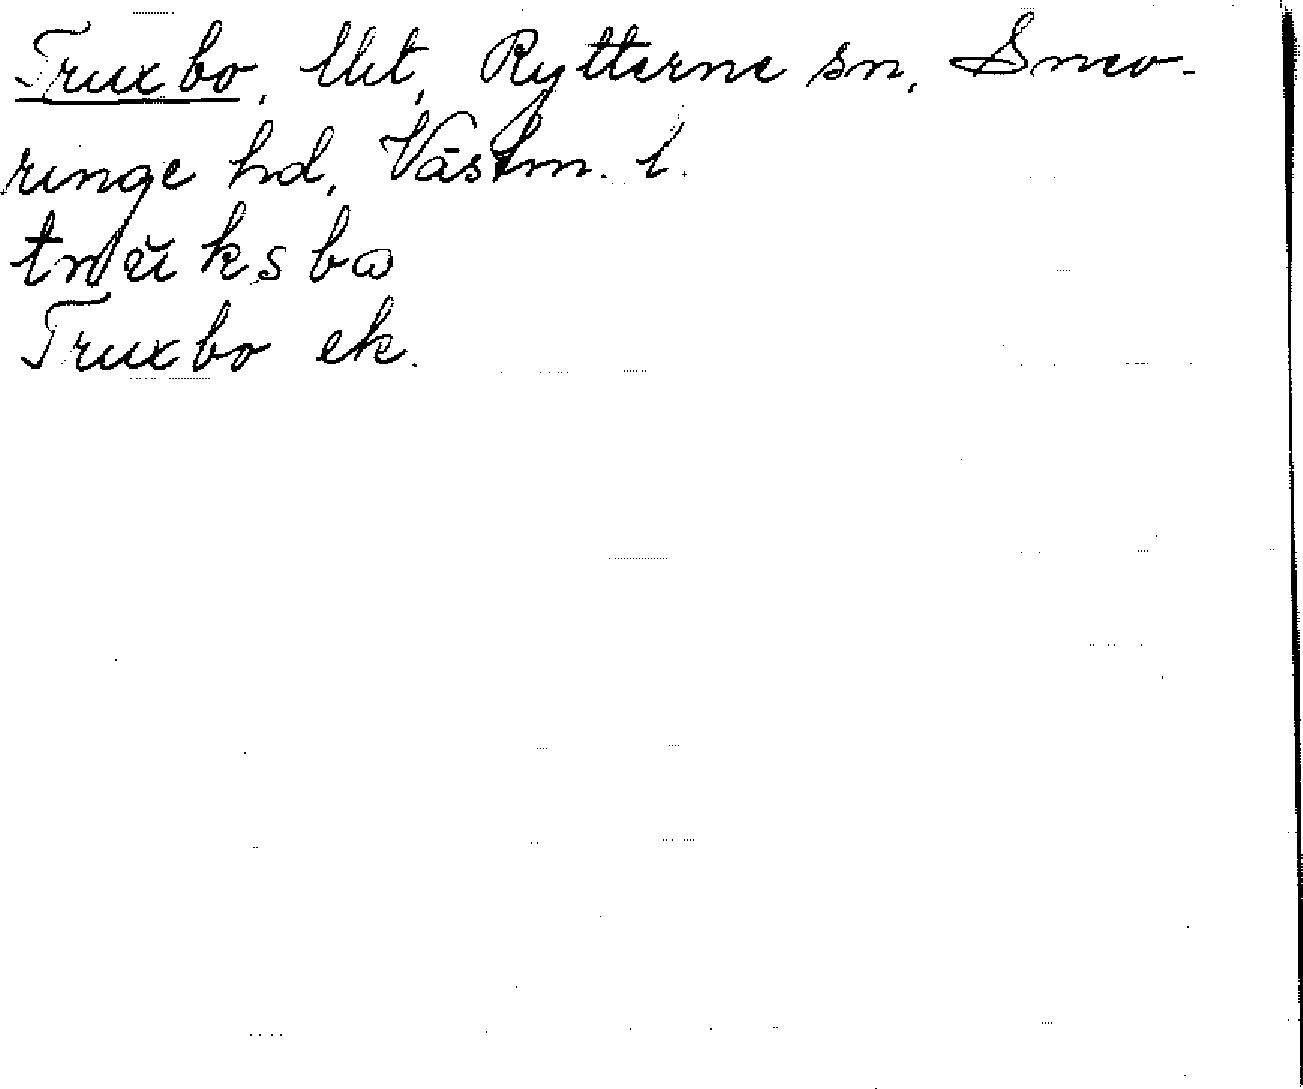 Truxbo, lht, Rytterne sn, Snev-
ringe hd, Västm. l.
trŭksbω
Truxbo ek.